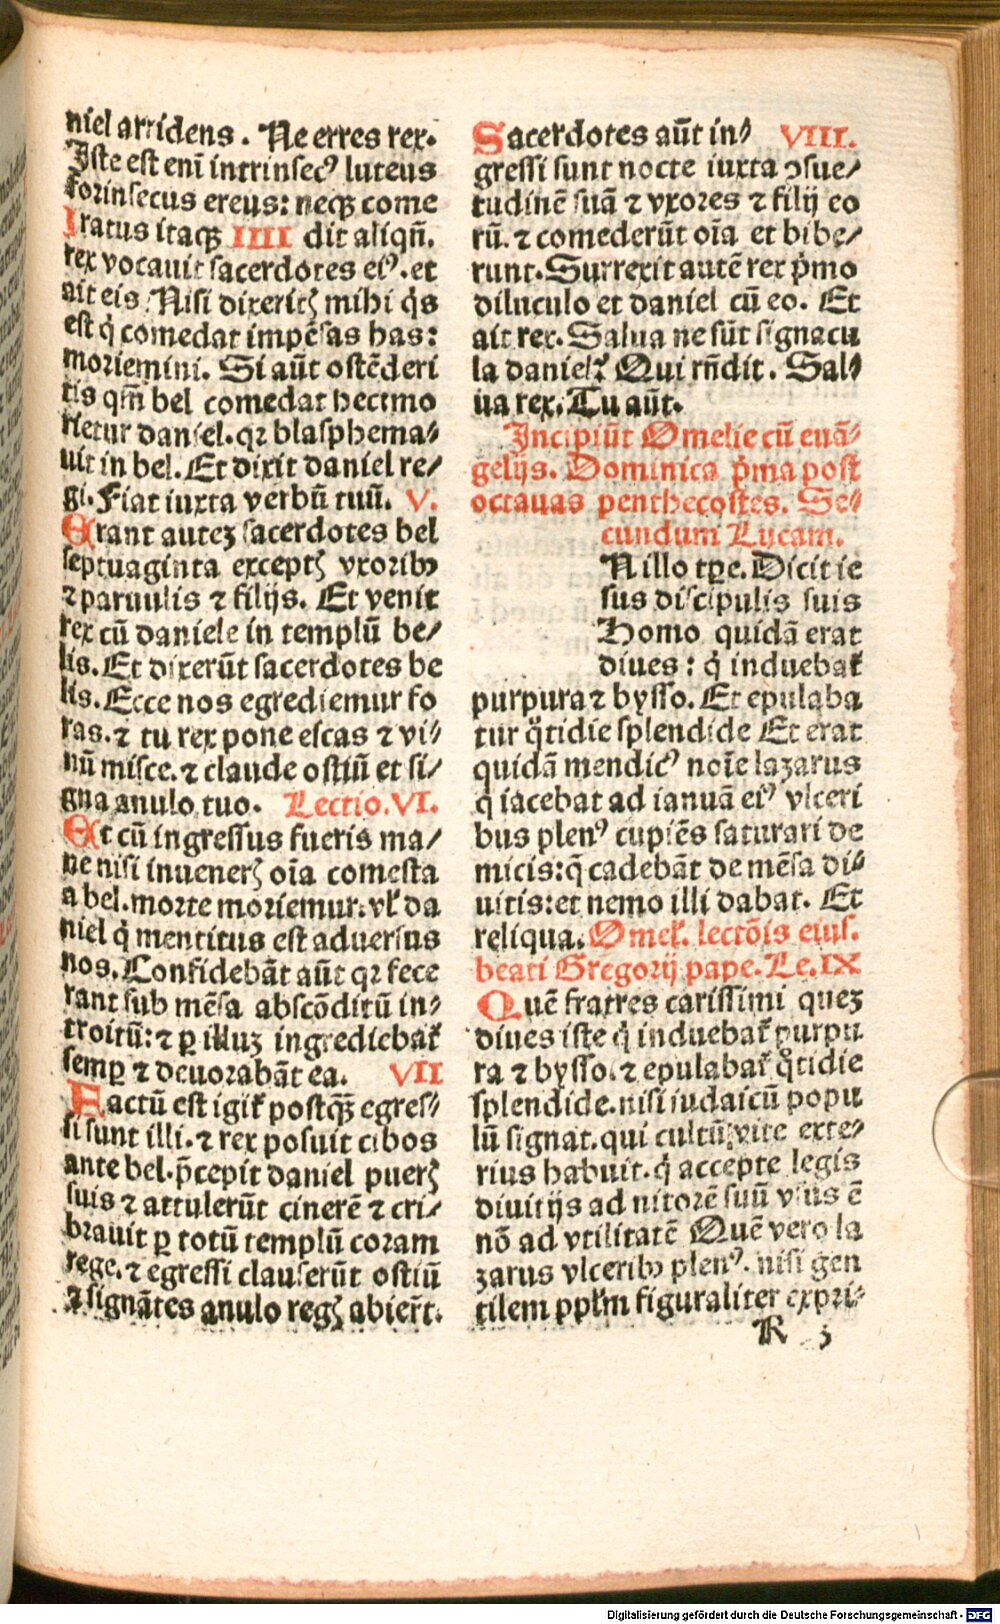 niel arridens. Ne erres rex.
Iste est enī intrinsecꝰ luteus
forinsecus ereus: neqꝫ come
Iratus itaqꝫ IIII dit aliqn̄.
rex vocauit sacerdotes eiꝰ. et
ait eis. Nisi dixeritꝭ mihi q̇s
est q̇ comedat impēsas has:
moriemini. Si aūt ostēderi
tis qm̄ bel comedat hec: mo
rietur daniel. qꝛ blasphema⸗
uit in bel. Et dixit daniel re⸗
gi. Fiat iuxta verbū tuū. V.
Erant auteꝫ sacerdotes bel
septuaginta exceptꝭ vxoribꝫ
⁊ paruulis ⁊ filijs. Et venit
rex cū daniele in templū be⸗
lis. Et dixerūt sacerdotes be
lis. Ecce nos egrediemur fo
ras. ⁊ tu rex pone escas ⁊ vi⸗
nū misce. ⁊ claude ostiū et si⸗
gna anulo tuo. Lectio. VI.
Et cū ingressus fueris ma⸗
ne nisi inuenerꝭ oīa comesta
a bel. morte moriemur: vł da
niel q̇ mentitus est aduersus
nos. Confidebāt aūt qꝛ fece
rant sub mēsa abscōditū in⸗
troitū: ⁊ ꝑ illuꝫ ingrediebaт̄
semꝑ ⁊ deuorabāt ea. VII
Factū est igit᷑ postqꝫ egres⸗
si sunt illi. ⁊ rex posuit cibos
ante bel. p̄cepit daniel puerꝭ
suis ⁊ attulerūt cinerē ⁊ cri⸗
brauit ꝑ totū templū coram
rege. ⁊ egressi clauserūt ostiū
⁊ signātes anulo regꝭ abier̄t.
Sacerdotes aūt in⸗ VIII.
gressi sunt nocte iuxta ↄsue⸗
tudinē suā ⁊ vxores ⁊ filij eo
rū. ⁊ comederūt oīa et bibe⸗
runt. Surrexit autē rex p̄mo
diluculo et daniel cū eo. Et
ait rex. Salua ne sūt signacu
la daniel? Qui rn̄dit. Sal⸗
ua rex. Tu aūt.
Incipiūt Omelie cū euā⸗
gelijs. Dominica p̄ma post
octauas penthecostes. Se⸗
cundum Lucam.
N illo tꝑe. Dicit ie
sus discipulis suis
Homo quidā erat
diues: q̇ induebat᷑
purpura ⁊ bysso. Et epulaba
tur q̊tidie splendide Et erat
quidā mendicꝰ noīe lazarus
q̇ iacebat ad ianuā eiꝰ vlceri
bus plenꝰ cupiēs saturari de
micis: q̄ cadebāt de mēsa di⸗
uitis: et nemo illi dabat. Et
reliqua. Omeł. lectōis eius.
beati Gregorij pape. Le. IX
Quē fratres carissimi queꝫ
diues iste q̇ induebat᷑ purpu
ra ⁊ bysso. ⁊ epulabat᷑ q̊tidie
splendide. nisi iudaicū popu
lū signat. qui cultū vite exte⸗
rius habuit. q̇ accepte legis
diuitijs ad nitorē suū vsus ē
nō ad vtilitatē Quē vero la
zarus vlceribꝫ plenꝰ. nisi gen
tilem ppl̄m figuraliter expri⸗
R 3
Digitalisierung gefördert durch die Deutsche Forschungsgemeinschaft - DFG